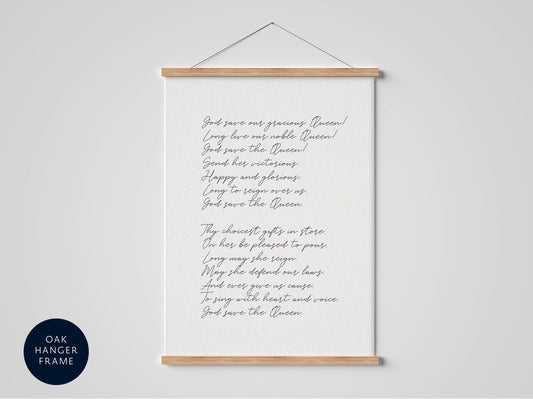 God save our gracious Queen!
Long live our noble Queen!
God save the Queen!
Send her victorious.
Happy and glorious.
Long to reign over us.
God save the Queen.
Thy choicest gifts in store
On her be pleased to pour.
Long may she reign.
May she defend our laws.
And ever give us cause.
To sing with heart and voice.
God save the Queen.
OAK
HANGER
FRAME